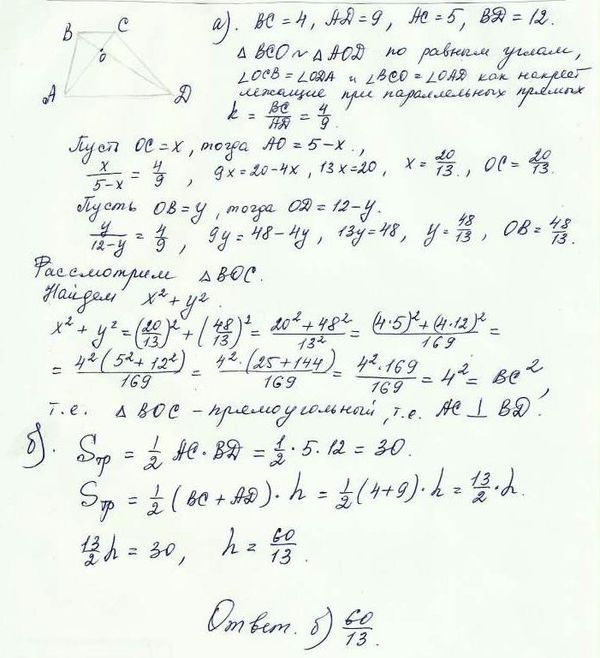 B C
O
A D
а). BC = 4, AD = 9, AC = 5, BD = 12.
△ BCO ∾ △ AOD по равным углам,
∠OCB = ∠ODA и ∠BCO = ∠OAD как накрест
лежащие при параллельных прямых
k = BC/AD = 4/9.
Пусть OC = x, тогда AO = 5-x.,
x/(5-x) = 4/9, 9x = 20-4x, 13x = 20, x = 20/13, OC = 20/13.
Пусть OB = y, тогда OD = 12-y.
y/(12-y) = 4/9, 9y = 48-4y, 13y = 48, y = 48/13, OB = 48/13.
Рассмотрим △ BOC.
Найдем x² + y².
x² + y² = (20/13)² + (48/13)² = (20² + 48²)/13² = ((4·5)² + (4·12)²)/169 =
= 4²(5² + 12²)/169 = 4²·(25 + 144)/169 = 4²·169/169 = 4² = BC²,
т.е. △ BOC - прямоугольный, т.е. AC ⊥ BD.
б). Sтр = 1/2 AC·BD = 1/2·5·12 = 30.
Sтр = 1/2 (BC + AD)·h = 1/2 (4+9)·h = 13/2·h.
13/2 h = 30, h = 60/13.
Ответ. б) 60/13.